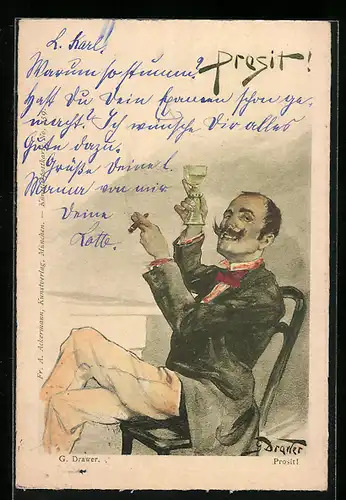 L. Karl.
Prosit!
Warum so stumm?
Hast Du Dein Examen schon ge-
macht? Ich wünsche Dir alles
Gute dazu.
Grüße Deine l.
Mama von mir
Deine
Lotte.
Fr. A. Ackermann, Kunstverlag, München. –
G. Drawer.
G Drawer
Prosit!